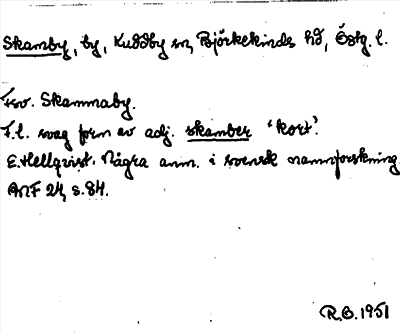 Skamby, by, Kuddby sn, Björkekinds hd, Östg. l.
Fsv. Skammaby.
F.l. svag form av adj. skamber 'kort'.
E. Hellqvist. Några anm. i svensk namnforskning.
ANF 24, s. 84.
R.O. 1951